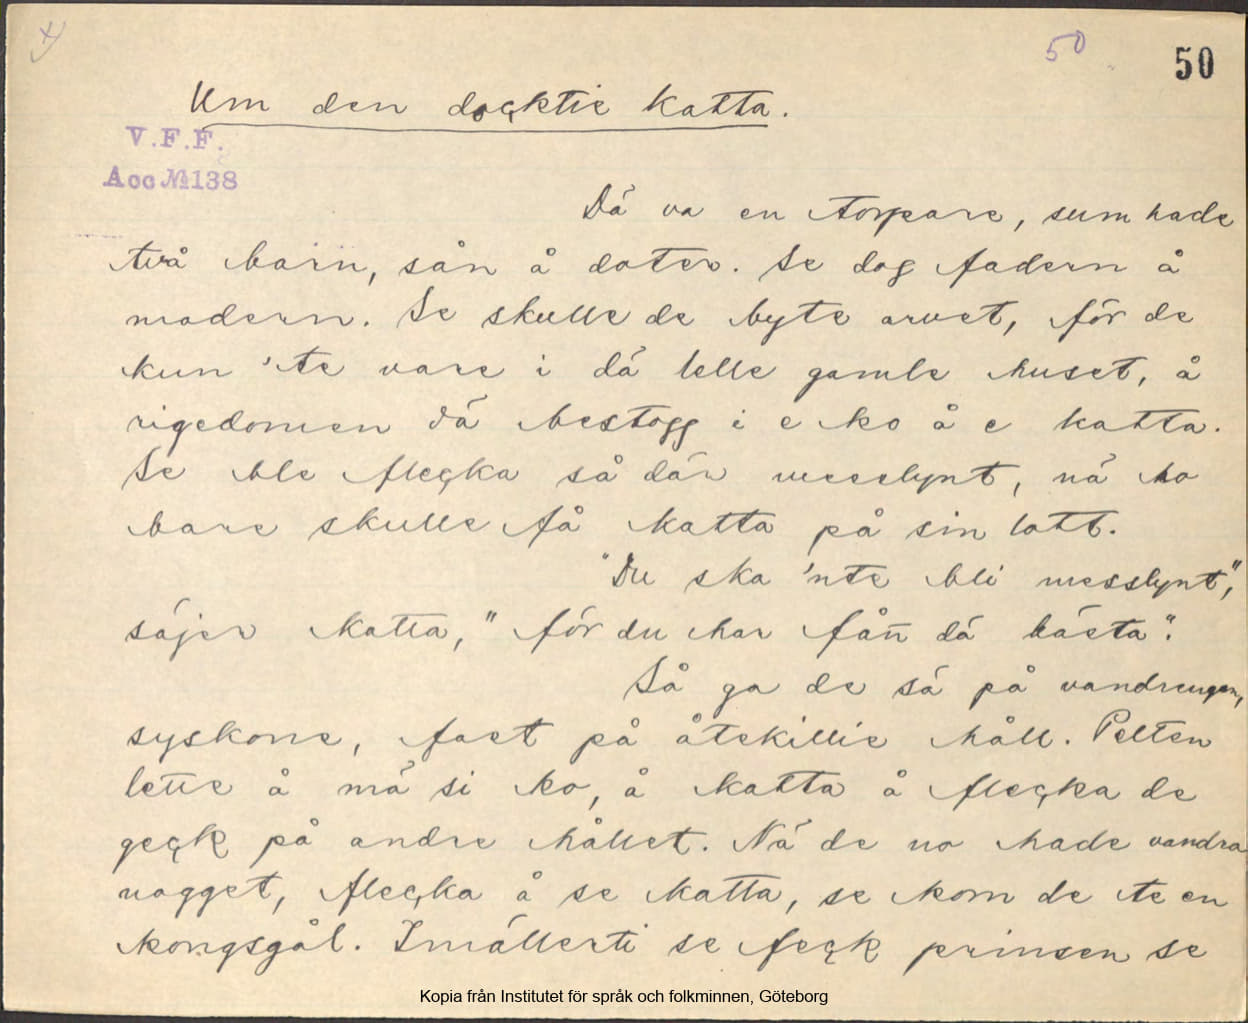 50
50
Um den docktie katta.
V.F.F.
Acc № 138
Dä va en torpare, sum hade
två barn, sån å dater. Se dog fadern å
modern. Se skulle de byte arvet, för de
kun 'te vare i dä lelle gamle huset, å
rigedomen dä bestogg i e ko å e katta.
Se ble flecka så där messlynt, nä ho
bare skulle få katta på sin lott.
"Du ska 'nte bli messlynt",
säjer katta, "för du har fån dä bästa".
Så ga de sä på vandrengen,
syskone, fast på åtskillie håll. Pelten
lette å mä si ko, å katta å flecka de
geck på andre hållet. Nä de no hade vandra
nogget, flecka å se katta, se kom de te en
kongsgål. Imällerti se feck prinsen se
Kopia från Institutet för språk och folkminnen, Göteborg